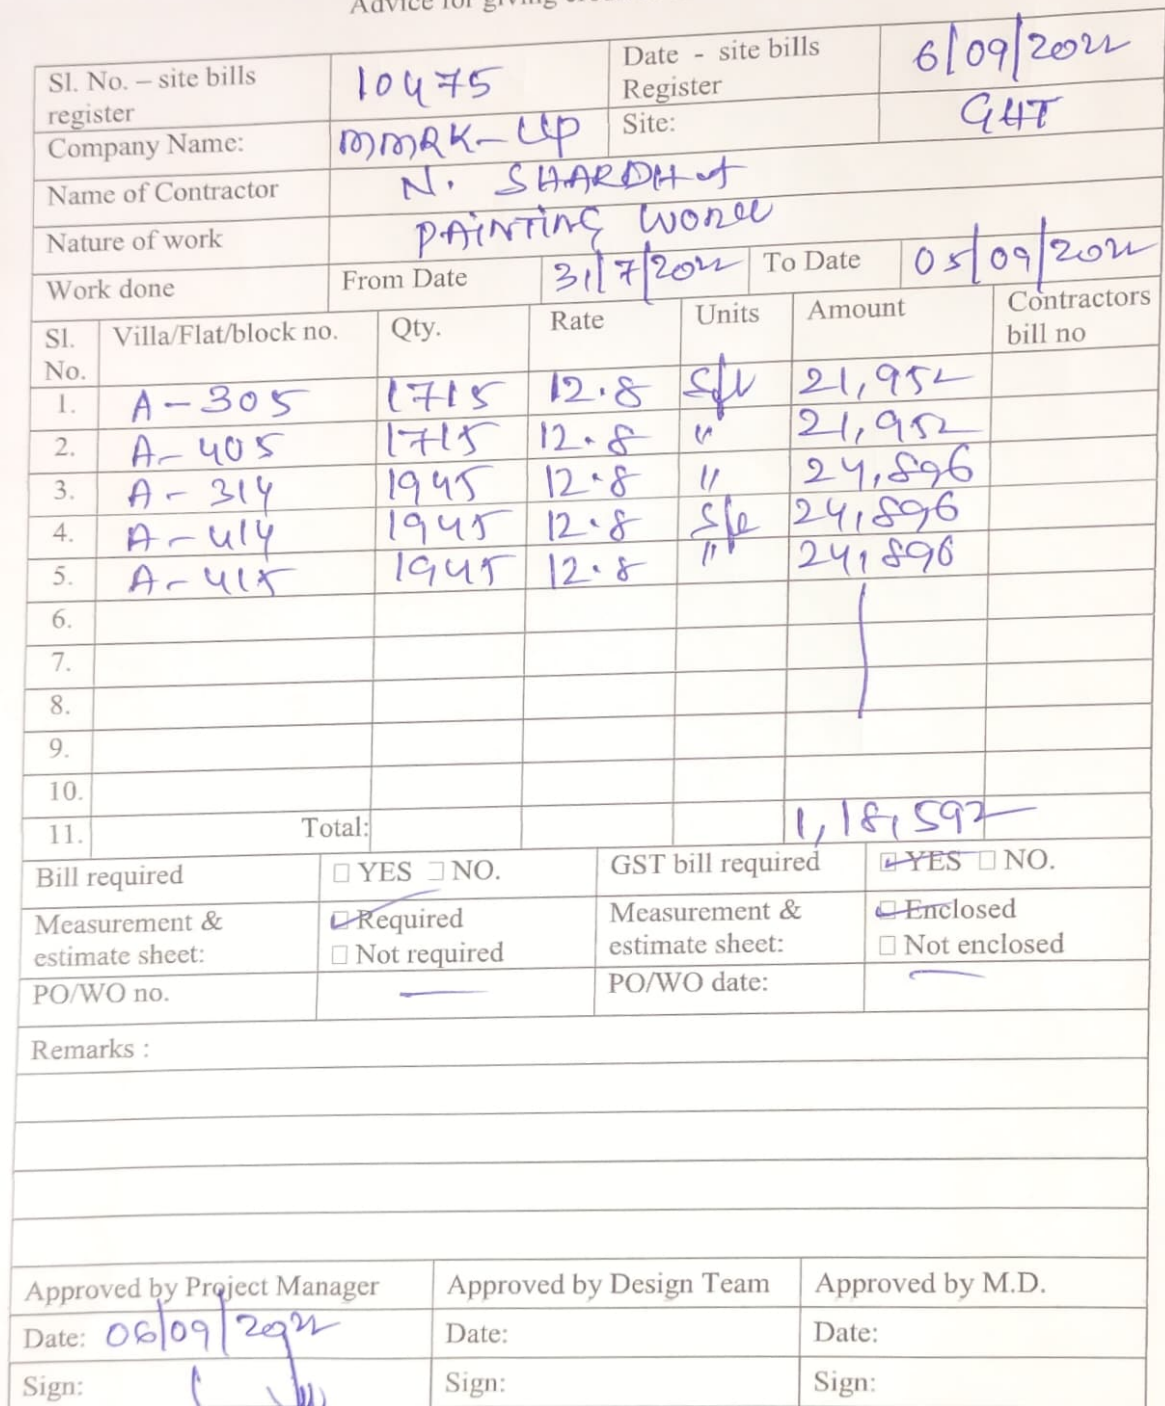 Advice for giving
Sl. No. – site bills register 10475 Date - site bills Register 6/09/2022
Company Name: MMRK-UP Site: GHT
Name of Contractor N. SHARDH
Nature of work PAINTING WORK
Work done From Date 31/7/2022 To Date 05/09/2022
Sl. No. Villa/Flat/block no. Qty. Rate Units Amount Contractors bill no
1. A-305 1715 12.8 Sft 21,952
2. A-405 1715 12.8 " 21,952
3. A-314 1945 12.8 " 24,896
4. A-414 1945 12.8 Sft 24,896
5. A-415 1945 12.8 " 24,896
6.
7.
8.
9.
10.
11. Total: 1,18,592
Bill required □ YES □ NO. GST bill required ☑ YES □ NO.
Measurement & estimate sheet: ☑ Required □ Not required Measurement & estimate sheet: ☑ Enclosed □ Not enclosed
PO/WO no. — PO/WO date: —
Remarks :
Approved by Project Manager Approved by Design Team Approved by M.D.
Date: 06/09/2022 Date: Date:
Sign: Sign: Sign: